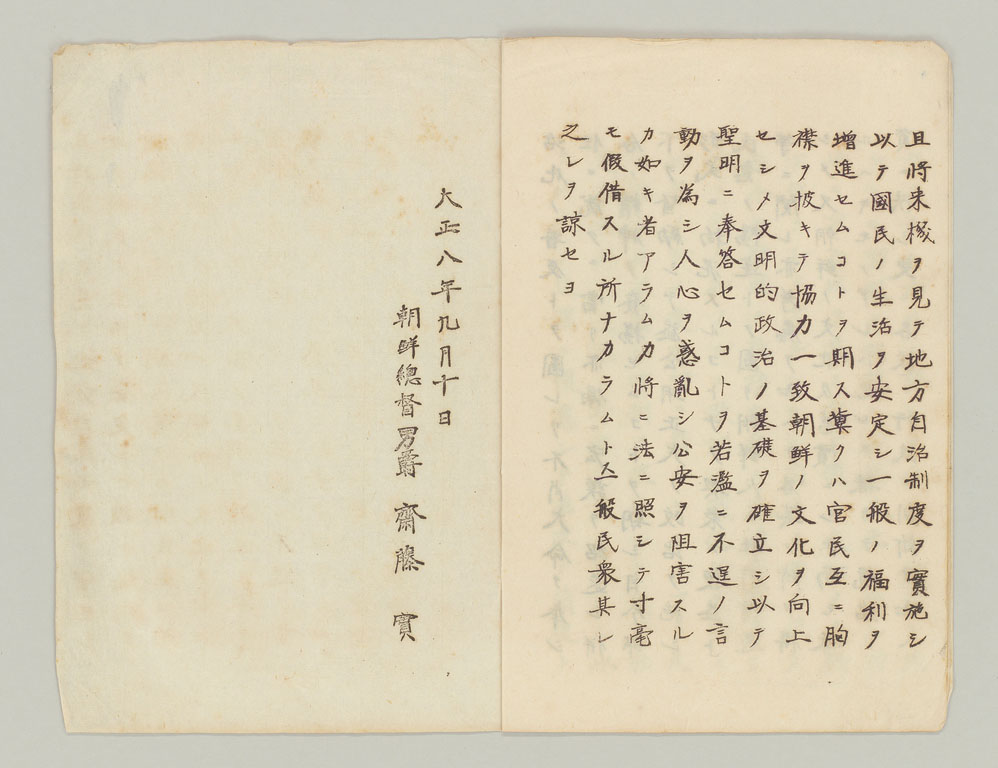 且將来機ヲ見テ地方自治制度ヲ實施シ
以テ國民ノ生活ヲ安定シ一般ノ福利ヲ
増進セムコトヲ期ス冀クハ官民互ニ胸
襟ヲ披キテ協力一致朝鮮ノ文化ヲ向上
セシメ文明的政治ノ基礎ヲ確立シ以テ
聖明ニ奉答セムコトヲ若濫ニ不逞ノ言
動ヲ為シ人心ヲ惑亂シ公安ヲ阻害スル
カ如キ者アラムカ將ニ法ニ照シテ寸毫
モ假借スル所ナカラムトス一般民衆其レ
之レヲ諒セヨ
大正八年九月十日
朝鮮總督男爵 齋藤 實